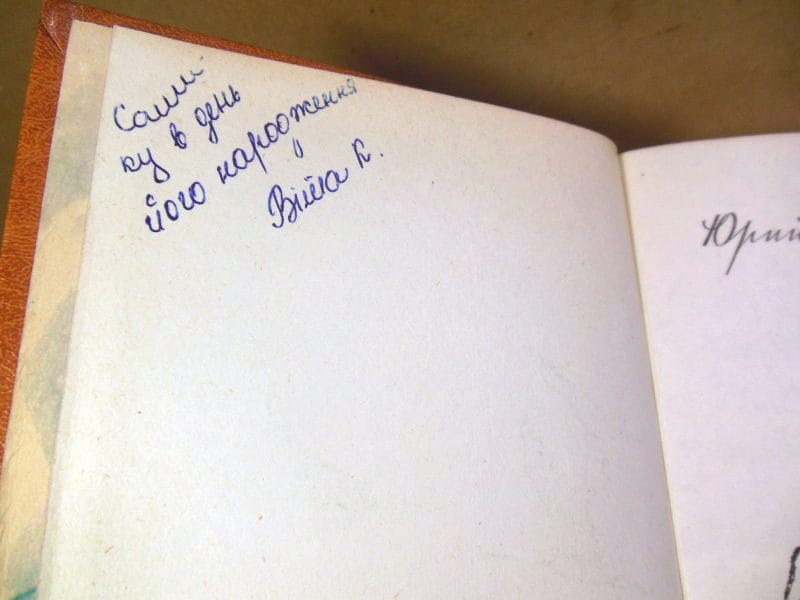 Сашк
ку в день
його народження
Віта К.
Юрий